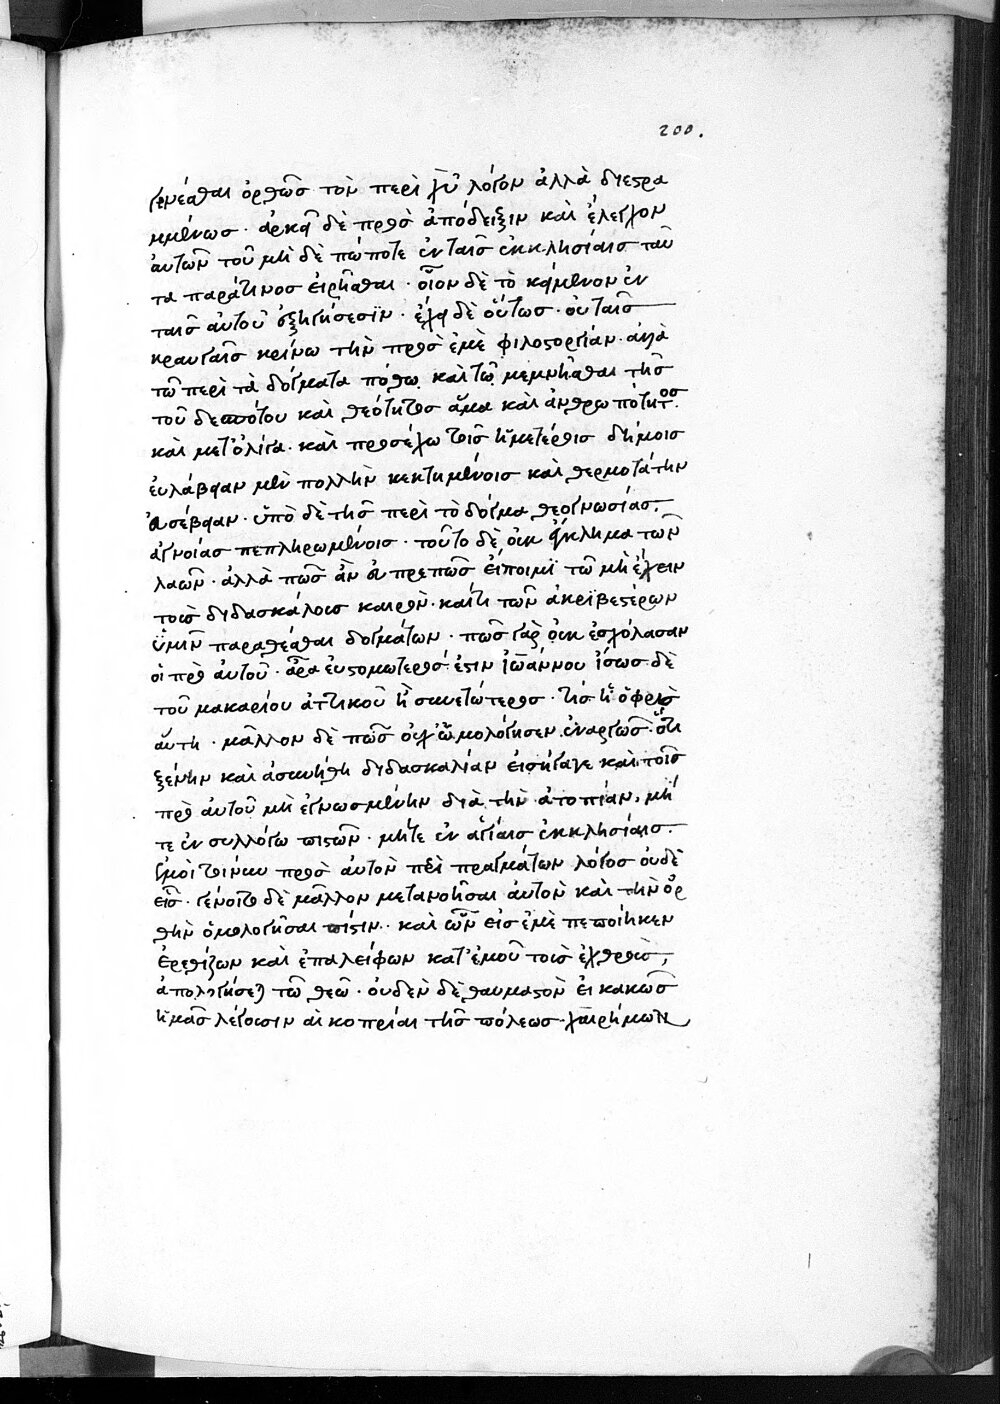 200.
γενέσθαι ὀρθῶς τὸν περὶ χυ λόγον ἀλλὰ διεστρα
μμένως · ἀρκεῖ δὲ πρὸς ἀπόδειξιν καὶ ἔλεγχον
αὐτῶν τοῦ μὴ δὲ πώποτε ἐν ταῖς ἐκκλησίαις ταῦ
τα παρά τινος εἰρῆσθαι · οἷον δὲ τὸ κείμενον ἐν
ταῖς αὐτοῦ ἐξηγήσεσϊν · ἔχει δὲ οὕτως · οὐ ταῖς
κραυγαῖς κρίνω τὴν πρὸς ἐμὲ φιλοστοργίαν · ἀλλὰ
τῶ περὶ τὰ δόγματα πόθω καὶ τῶ μεμνῆσθαι τῆς
τοῦ δεσπότου καὶ θεότητος ἅμα καὶ ἀνθρωπότητος.
καὶ μετ' ὀλίγα · καὶ προσέχω τοῖς ἡμετέροις δήμοις
εὐλάβειαν μὲν πολλὴν κεκτημένοις καὶ θερμοτάτην
εὐσέβειαν · ὑπὸ δὲ τῆς περὶ τὸ δόγμα θεογνωσίας
ἀγνοίας πεπληρωμένοις · τοῦτο δὲ οὐκ ἔγκλημα τῶν
λαῶν · ἀλλὰ πῶς ἂν εὐπρεπῶς εἴποιμϊ τῶ μὴ ἔχειν
τοὺς διδασκάλους καιρὸν · καί τι τῶν ἀκρϊβεστέρων
ὑμῖν παραθέσθαι δογμάτων · πῶς γὰρ οὐκ ἐσχόλασαν
οἱ πρὸ αὐτοῦ · ἆρα εὐστομώτερός ἐστιν ἰωάννου ἴσως δὲ
τοῦ μακαρίου ἀττικοῦ ἢ συνετώτερος · τίς ἡ ὀφρὺς
αὕτη · μᾶλλον δὲ πῶς οὐχ ὡμολόγησεν ἐναργῶς ὅτι
ξένην καὶ ἀσυνήθη διδασκαλίαν εἰσήγαγε καὶ τοῖς
πρὸ αὐτοῦ μὴ ἐγνωσμένην διὰ τὴν ἀτοπίαν, μή
τε ἐν συλλόγω πιστῶν · μήτε ἐν ἁγίαις ἐκκλησίαις.
ἐμοὶ τοίνυν πρὸς αὐτὸν περὶ πραγμάτων λόγος οὐδὲ
εἷς · γένοιτο δὲ μᾶλλον μετανοῆσαι αὐτὸν καὶ τὴν ὀρ
θὴν ὁμολογῆσαι πίστιν · καὶ ὧν εἰς ἐμὲ πεποίηκεν
ἐρεθίζων καὶ ἐπαλείφων κατ' ἐμοῦ τοὺς ἐχθροὺς,
ἀπολογήσεται τῶ θεῶ · οὐδὲν δὲ θαυμαστὸν εἰ κακῶς
ἡμᾶς λέγουσιν αἱ κοπρίαι τῆς πόλεως · χαιρήμων